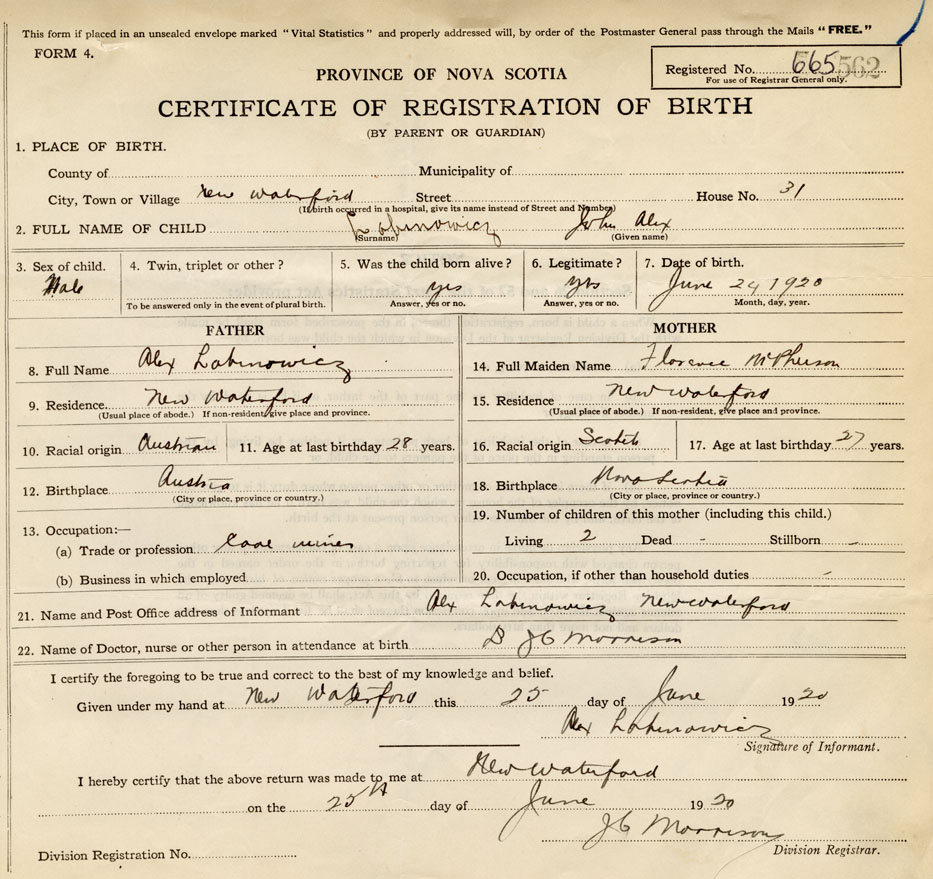 This form if placed in an unsealed envelope marked "Vital Statistics" and properly addressed will, by order of the Postmaster General pass through the Mails "FREE."
FORM 4.
Registered No. 665 562
For use of Registrar General only.
PROVINCE OF NOVA SCOTIA
CERTIFICATE OF REGISTRATION OF BIRTH
(BY PARENT OR GUARDIAN)
1. PLACE OF BIRTH.
County of Municipality of
City, Town or Village New Waterford Street House No. 31
(If birth occurred in a hospital, give its name instead of Street and Number)
2. FULL NAME OF CHILD Labinowicz John Alex
(Surname) (Given name)
3. Sex of child. 4. Twin, triplet or other? 5. Was the child born alive? 6. Legitimate? 7. Date of birth.
Male yes yes June 24 1920
To be answered only in the event of plural birth. Answer, yes or no. Answer, yes or no. Month, day, year.
FATHER
8. Full Name Alex Labinowicz
9. Residence New Waterford
(Usual place of abode.) If non-resident, give place and province.
10. Racial origin Austrian 11. Age at last birthday 28 years.
12. Birthplace Austria
(City or place, province or country.)
13. Occupation:—
(a) Trade or profession coal miner
(b) Business in which employed
MOTHER
14. Full Maiden Name Florence McPherson
15. Residence New Waterford
(Usual place of abode.) If non-resident, give place and province.
16. Racial origin Scotch 17. Age at last birthday 27 years.
18. Birthplace Nova Scotia
(City or place, province or country.)
19. Number of children of this mother (including this child.)
Living 2 Dead - Stillborn -
20. Occupation, if other than household duties -
21. Name and Post Office address of Informant Alex Labinowicz New Waterford
22. Name of Doctor, nurse or other person in attendance at birth D JG Morrison
I certify the foregoing to be true and correct to the best of my knowledge and belief.
Given under my hand at New Waterford this 25 day of June 1920
Alex Labinowicz
Signature of Informant.
I hereby certify that the above return was made to me at New Waterford
on the 25th day of June 1920
JG Morrison
Division Registrar.
Division Registration No.